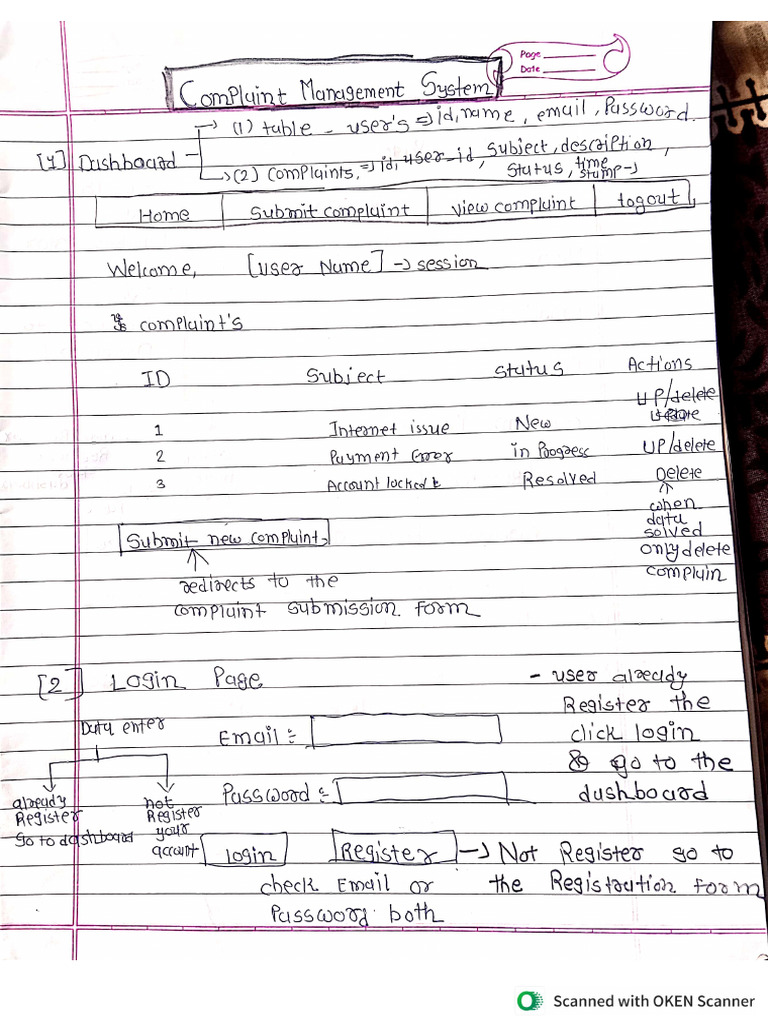 Page
Date
Complaint Management System
(1) table - user's => id, name, email, Password.
[1] Dashboard
(2) Complaints, => id, user_id, Subject, description,
Status, time stamp
Home Submit complaint View complaint logout
Welcome, [User Name] -> session
complaint's
ID Subject Status Actions
1 Internet issue New UP/delete
2 Payment Error in Progress UP/delete
3 Account locked Resolved Delete
when
data
solved
only delete
complain
Submit new complaint,
redirects to the
complaint submission form
[2] Login Page
- user already
Register the
click login
& go to the
dashboard
Data enter
Email :
Password :
already
Register
Go to dashboard
not
Register
your
account
login Register -> Not Register go to
the Registration form
check Email or
Password both
Scanned with OKEN Scanner